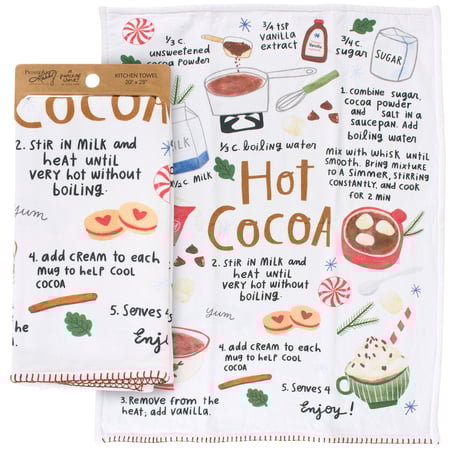 KITCHEN TOWEL
20" x 28"
COCOA
2. Stir in Milk and
heat until
very hot without
boiling.
yum
4. add cream to each
mug to help cool
cocoa
5. Serves 4
Enjoy
the
.
1/3 c.
unsweetened
cocoa powder
3/4 tsp
vanilla
extract
Vanilla
3/4 c.
sugar
SUGAR
1. combine sugar,
cocoa powder
and salt in a
saucepan. Add
boiling water
mix with whisk until
smooth. Bring mixture
to a simmer, stirring
constantly, and cook
for 2 min
1/3 c. boiling water
MILK
1/2 c. MILK
Hot
COCOA
2. Stir in Milk and
heat until
very hot without
boiling.
yum
4. add cream to each
mug to help cool
cocoa
3. Remove from the
heat; add vanilla.
5. Serves 4
Enjoy!